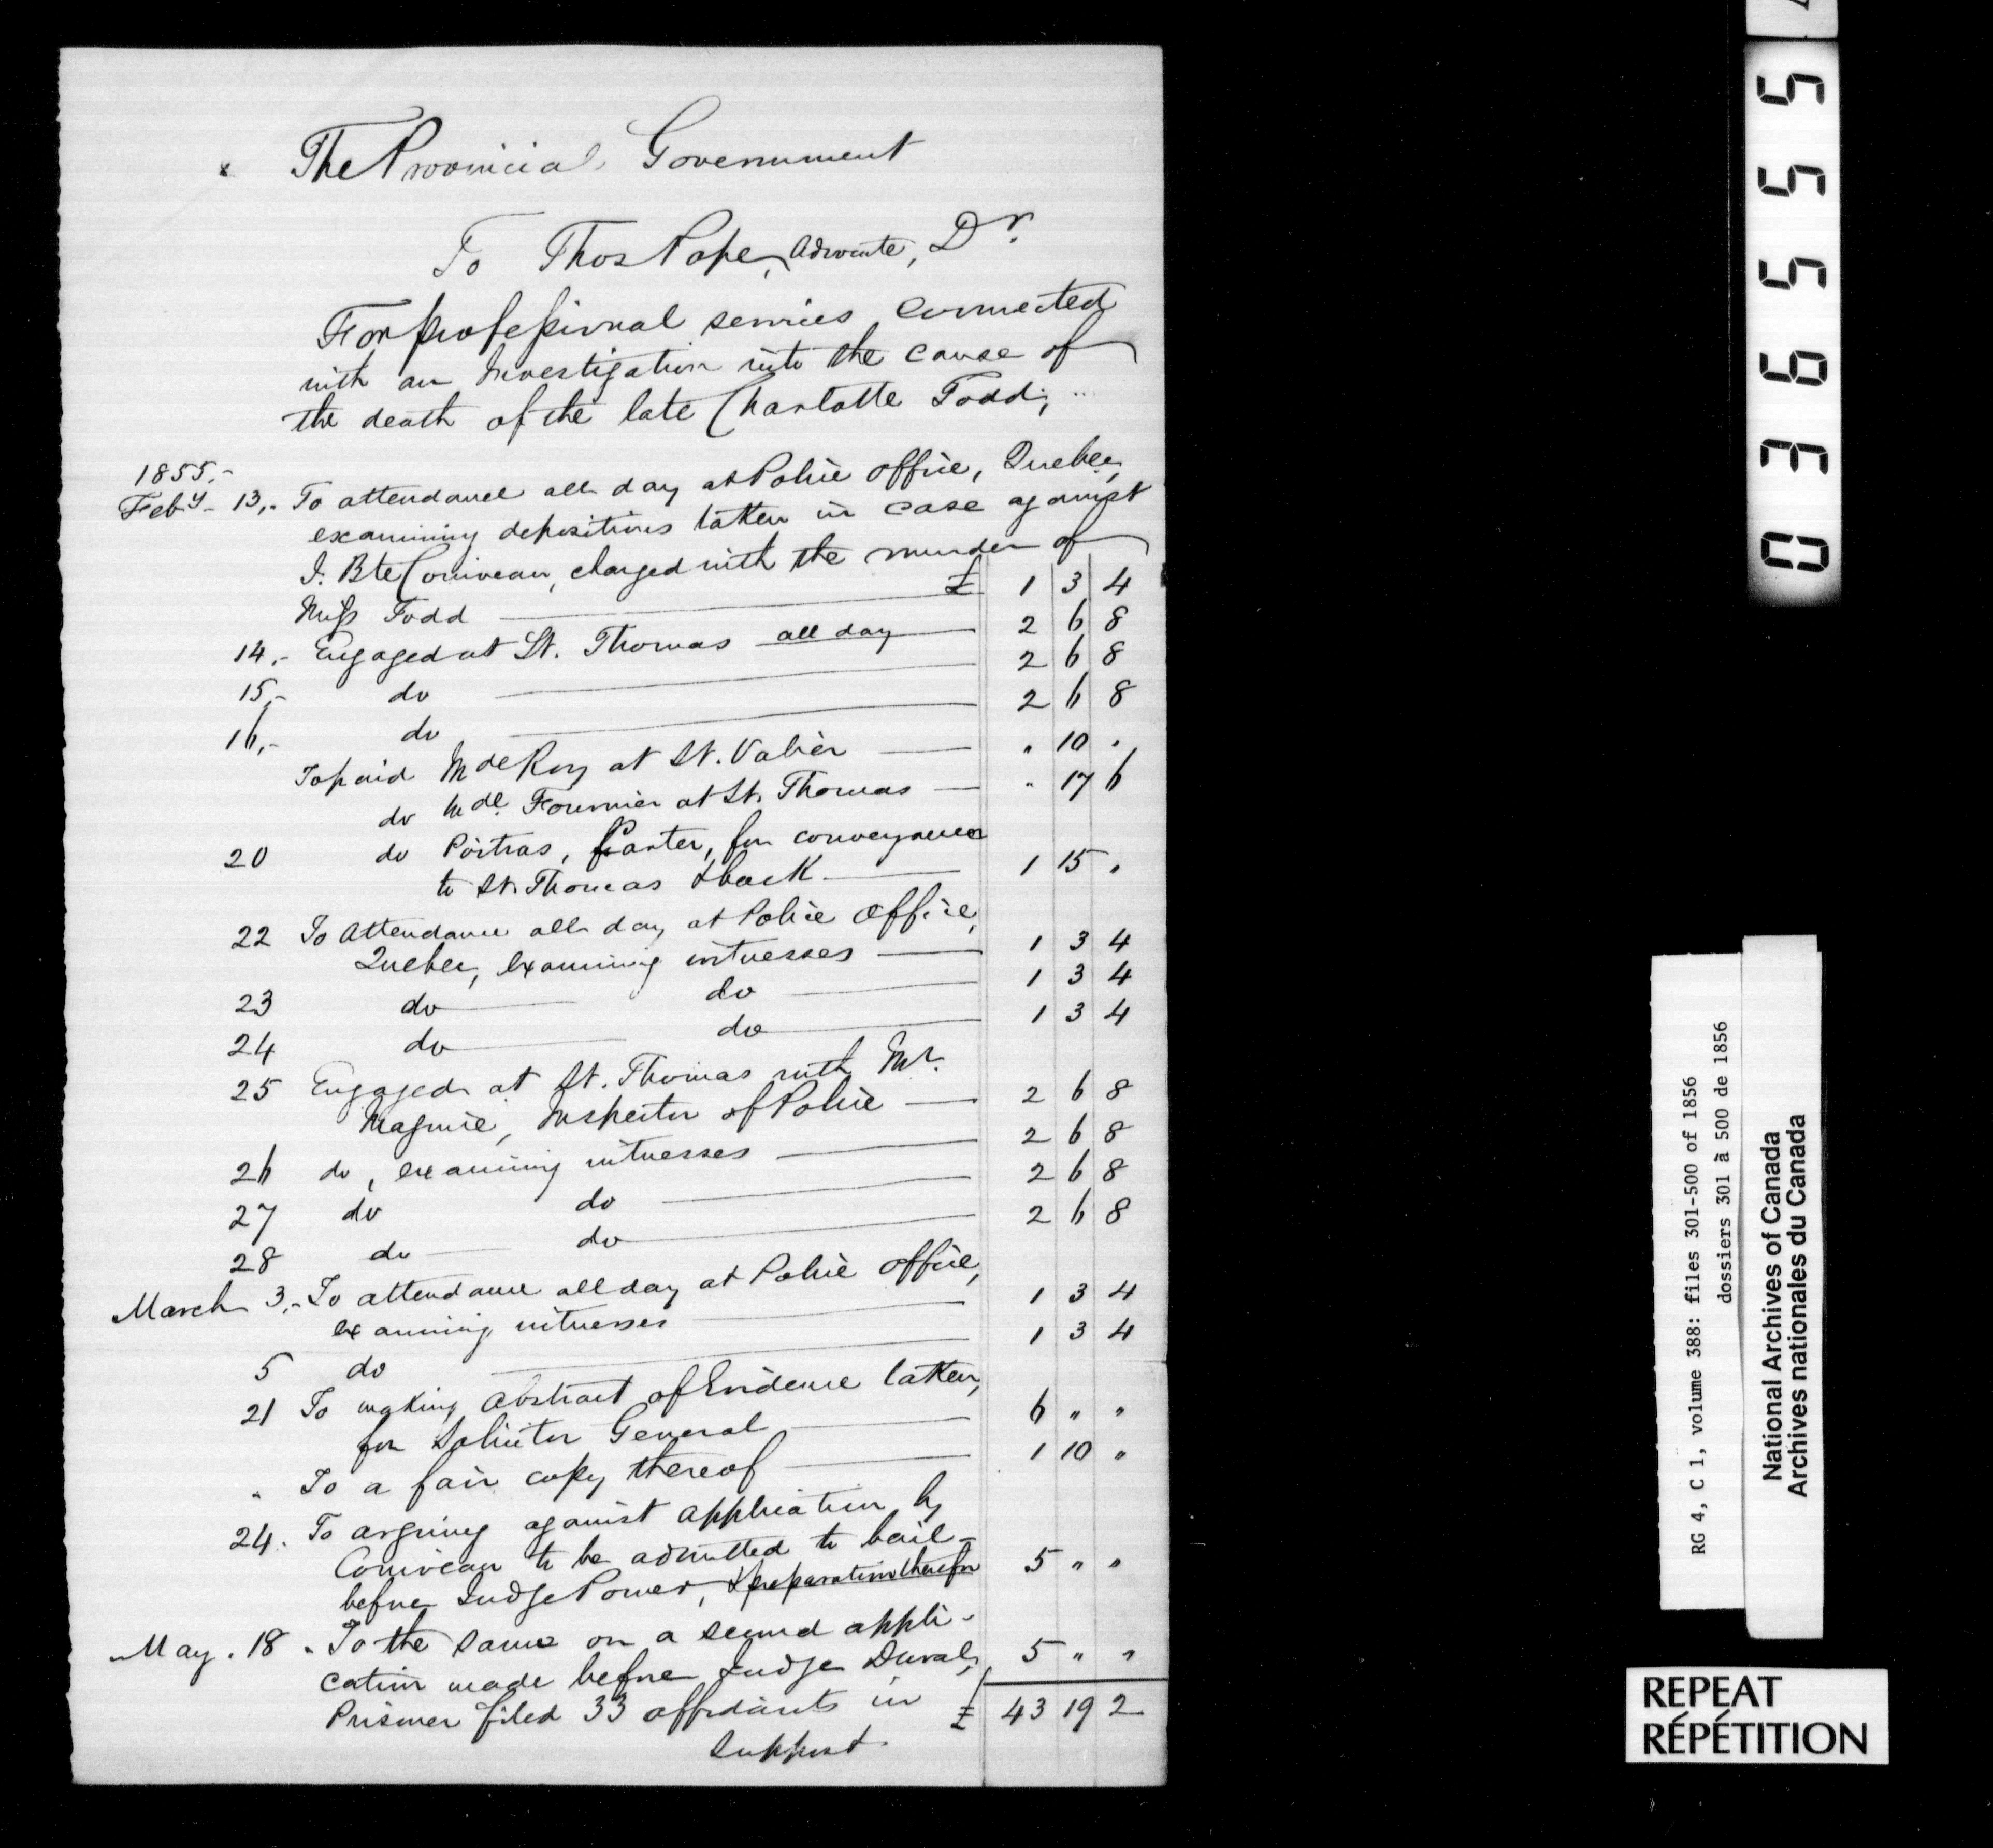 The Provincial Government
To Thos Pope, Advocate, Dr.
For professional services connected
with an Investigation into the cause of
the death of the late Charlotte Todd;
1855.-
Feby- 13,- To attendance all day at Police Office, Quebec,
examining depositions taken in case against
J. Bte Corriveau, charged with the murder of
Miss Todd £ 1 3 4
14,- Engaged at St. Thomas all day 2 6 8
15,- do 2 6 8
16,- do 2 6 8
To paid Mde Roy at St. Valier " 10 "
do Mde. Fournier at St. Thomas " 17 6
20 do Poitras, Carter, for conveyance
to St. Thomas & back 1 15 "
22 To Attendance all day at Police Office,
Quebec, examining witnesses 1 3 4
23 do do 1 3 4
24 do do 1 3 4
25 Engaged at St. Thomas with Mr.
Maguire, Inspector of Police 2 6 8
26 do, examining witnesses 2 6 8
27 do do 2 6 8
28 do do 2 6 8
March 3,- To attendance all day at Police Office,
examining witnesses 1 3 4
5 do 1 3 4
21 To making Abstract of Evidence taken,
for Solicitor General 6 " "
" To a fair copy thereof 1 10 "
24. To arguing against application by
Corriveau to be admitted to bail-
before Judge Power, & preparation therefor 5 " "
May. 18. To the same on a second appli-
cation made before Judge Duval, 5 " "
Prisoner filed 33 affidavits in £ 43 19 2
support
036555
RG 4, C 1, volume 388: files 301-500 of 1856
dossiers 301 à 500 de 1856
National Archives of Canada
Archives nationales du Canada
REPEAT
RÉPÉTITION